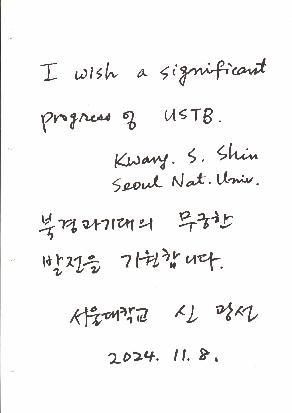 I wish a significant
progress of USTB.
Kwang. S. Shin
Seoul Nat. Univ.
북경과기대의 무궁한
발전을 기원합니다.
서울대학교 신 광선
2024. 11. 8.